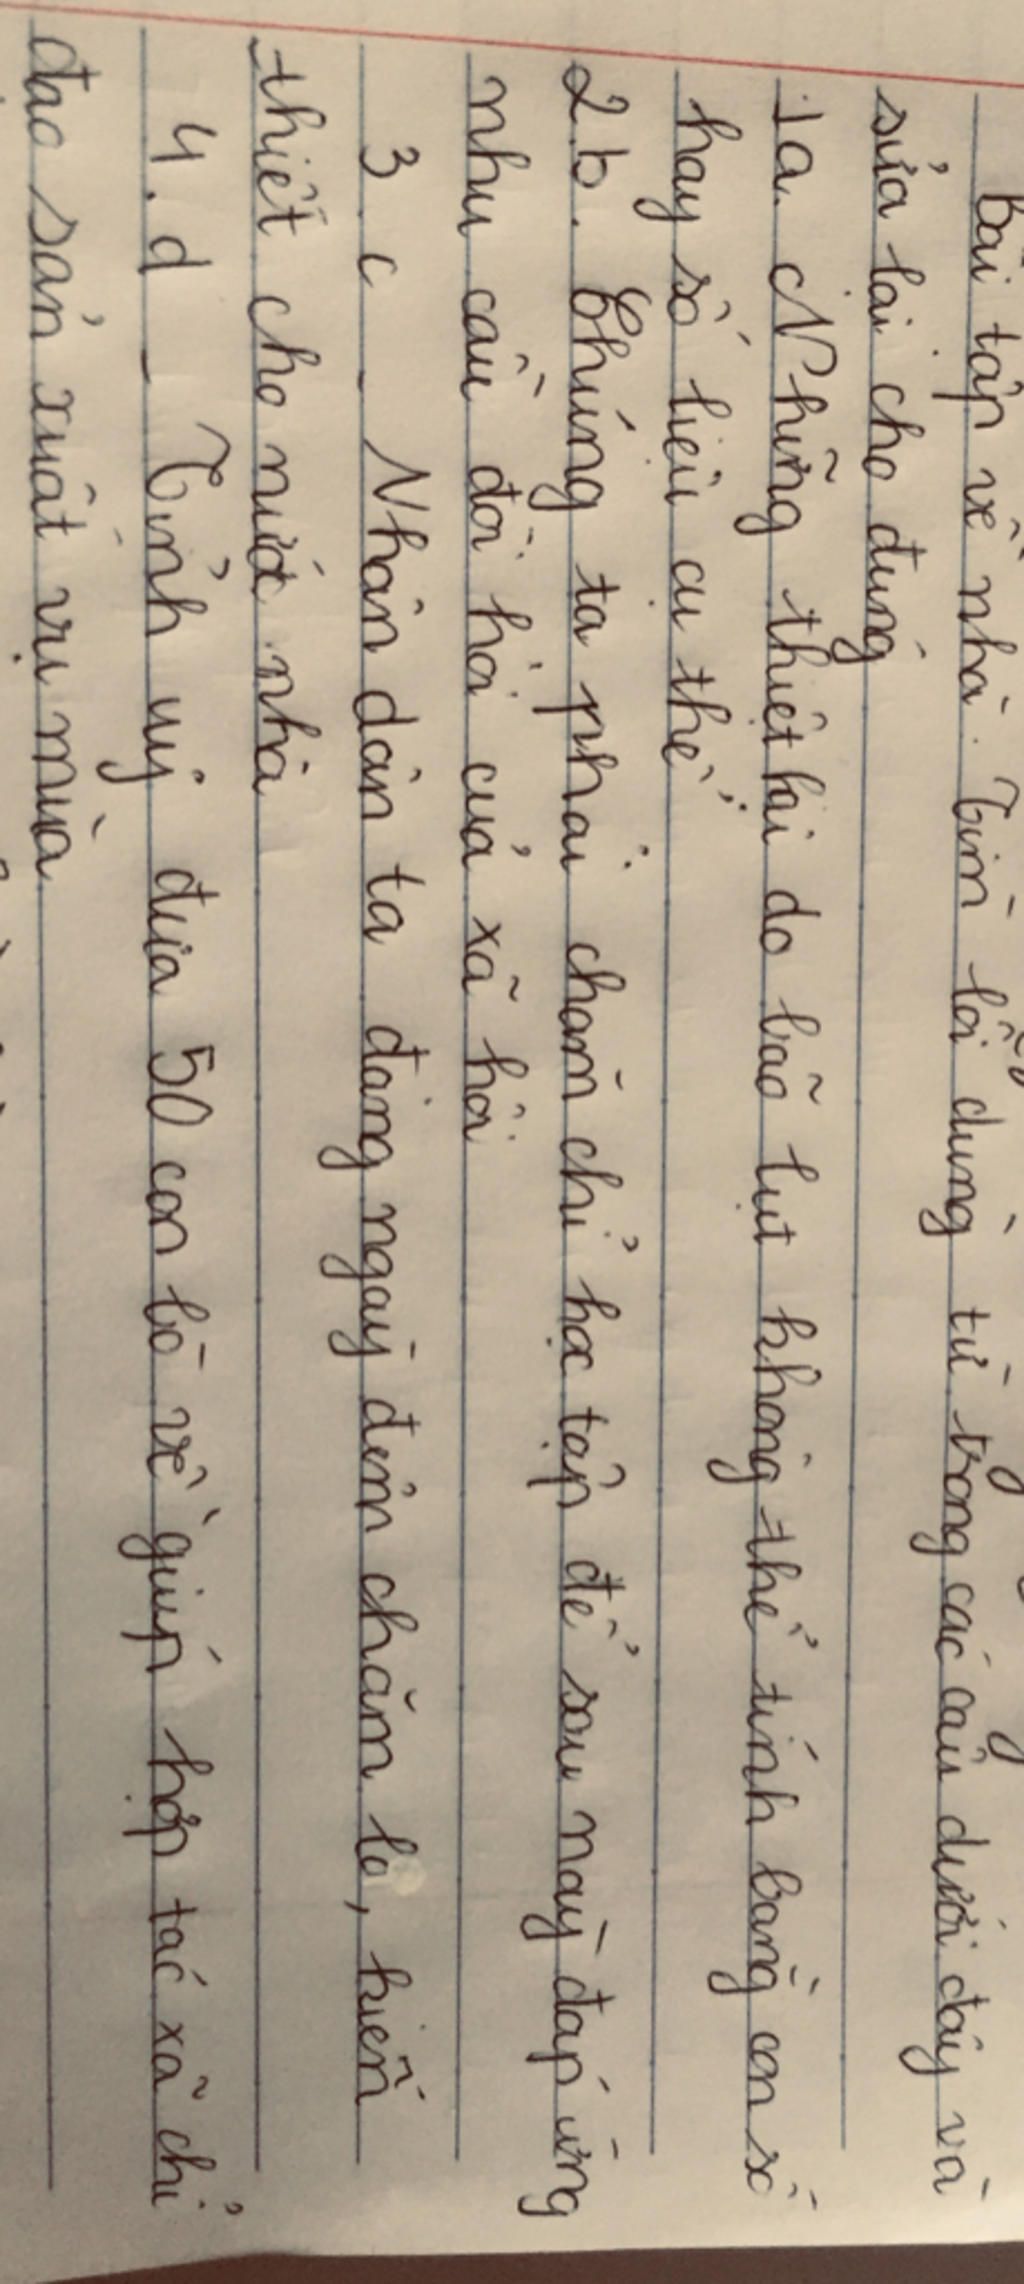 Bài tập về nhà. Tìm lỗi dùng từ trong các câu dưới đây và
sửa lại cho đúng
1a. Những thiệt hại do bão lụt không thể tính bằng con số
hay số liệu cụ thể.
2.b. Chúng ta phải chăm chỉ học tập để sau này đáp ứng
nhu cầu đòi hỏi của xã hội.
3 c _ Nhân dân ta đang ngày đêm chăm lo, kiến
thiết cho nước nhà
4.d _ Tỉnh uỷ đưa 50 con bò về giúp hợp tác xã chỉ
đạo sản xuất vụ mùa